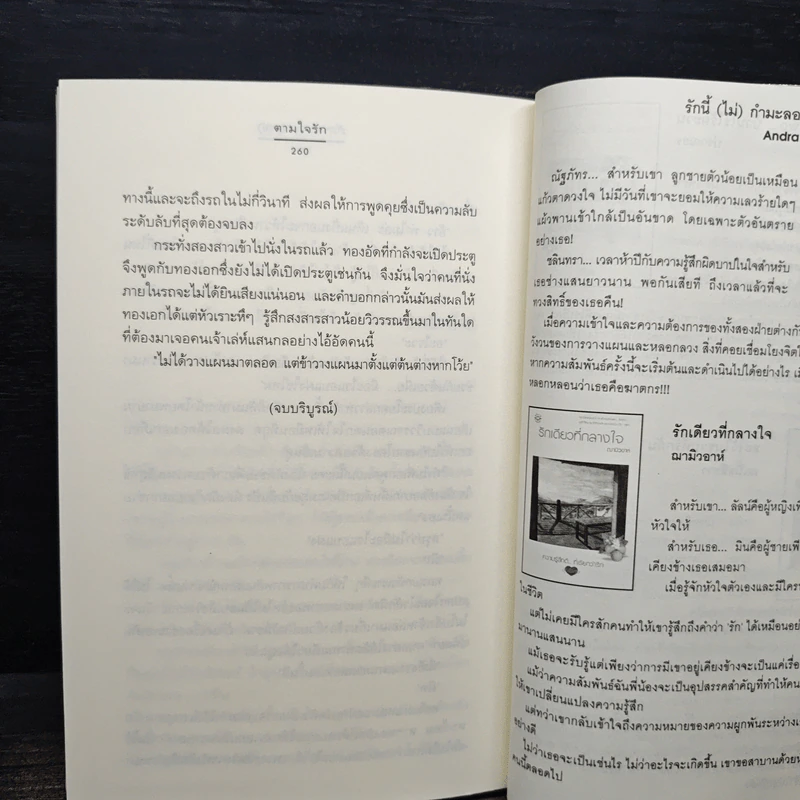 ตามใจรัก
260
ทางนี้และจะถึงรถในไม่กี่วินาที ส่งผลให้การพูดคุยซึ่งเป็นความลับ
ระดับลับที่สุดต้องจบลง
กระทั่งสองสาวเข้าไปนั่งในรถแล้ว ทองอัดที่กำลังจะเปิดประตู
จึงพูดกับทองเอกซึ่งยังไม่ได้เปิดประตูเช่นกัน จึงมั่นใจว่าคนที่นั่ง
ภายในรถจะไม่ได้ยินเสียงแน่นอน และคำบอกกล่าวนั้นมันส่งผลให้
ทองเอกได้แต่หัวเราะหึๆ รู้สึกสงสารสาวน้อยวิวรรณขึ้นมาในทันใด
ที่ต้องมาเจอคนเจ้าเล่ห์แสนกลอย่างไอ้อัดคนนี้
"ไม่ได้วางแผนมาตลอด แต่ข้าวางแผนมาตั้งแต่ต้นต่างหากโว้ย"
(จบบริบูรณ์)
รักนี้ (ไม่) กำมะลอ
Andra
ณัฐภัทร... สำหรับเขา ลูกชายตัวน้อยเป็นเหมือน
แก้วตาดวงใจ ไม่มีวันที่เขาจะยอมให้ความเลวร้ายใดๆ
แผ้วพานเข้าใกล้เป็นอันขาด โดยเฉพาะตัวอันตราย
อย่างเธอ!
ชลินทรา... เวลาห้าปีกับความรู้สึกผิดบาปในใจสำหรับ
เธอช่างแสนยาวนาน พอกันเสียที ถึงเวลาแล้วที่จะ
ทวงสิทธิ์ของเธอคืน!
เมื่อความเข้าใจและความต้องการของทั้งสองฝ่ายต่าง
วังวนของการวางแผนและหลอกลวง สิ่งที่คอยเชื่อมโยงจิตใ
หากความสัมพันธ์ครั้งนี้จะเริ่มต้นและดำเนินไปได้อย่างไร
หลอกหลอนว่าเธอคือฆาตกร!!!
รักเดียวที่กลางใจ
รักเดียวที่กลางใจ
ฌามิวอาห์
สำหรับเขา... ลัลน์คือผู้หญิง
หัวใจให้
สำหรับเธอ... มินคือผู้ชาย
เคียงข้างเธอเสมอมา
เมื่อรู้จักหัวใจตัวเองและมีใคร
ในชีวิต
แต่ไม่เคยมีใครสักคนทำให้เขารู้สึกถึงคำว่า 'รัก' ได้เหมือน
มานานแสนนาน
แม้เธอจะรับรู้แต่เพียงว่าการมีเขาอยู่เคียงข้างจะเป็นแค่
แม้ว่าความสัมพันธ์ฉันพี่น้องจะเป็นอุปสรรคสำคัญที่ทำให้
ให้เขาเปลี่ยนแปลงความรู้สึก
แต่ทว่าเขากลับเข้าใจถึงความหมายของความผูกพันระหว่าง
อย่างดี
ไม่ว่าเธอจะเป็นเช่นไร ไม่ว่าอะไรจะเกิดขึ้น เขาขอสาบานด้วย
คนนี้ตลอดไป